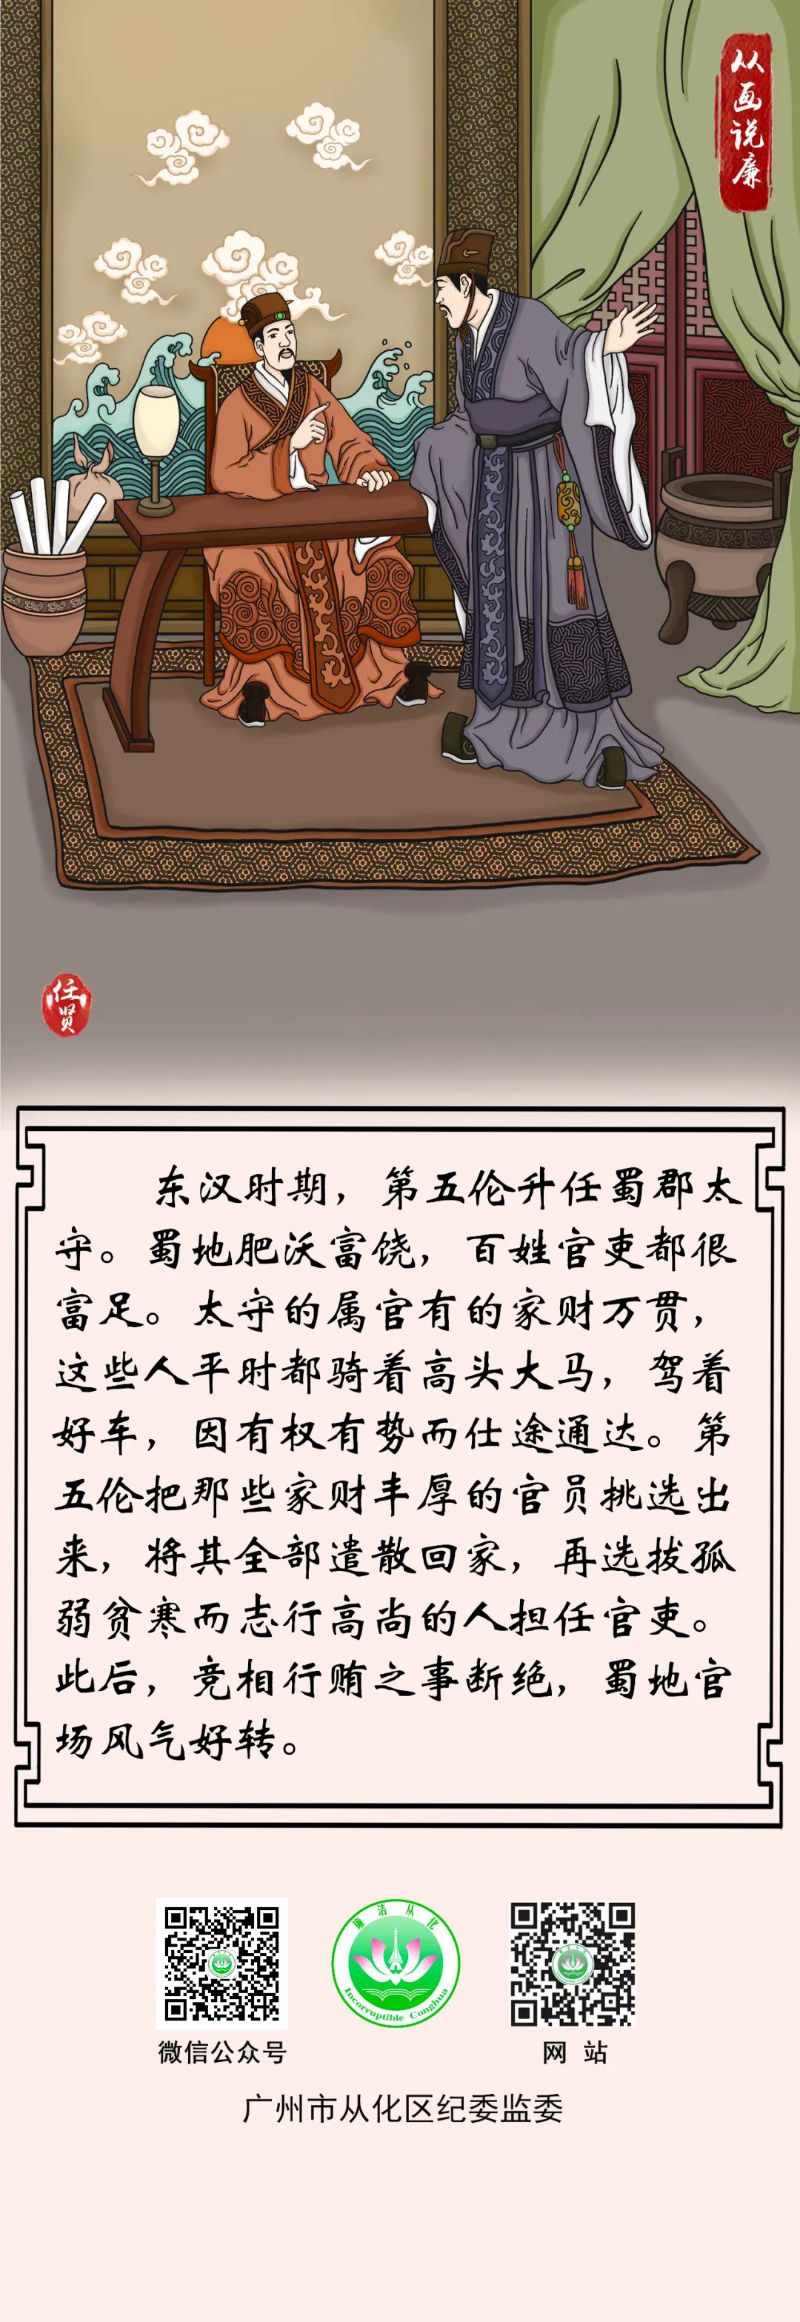 从画说廉
任贤
东汉时期，第五伦升任蜀郡太
守。蜀地肥沃富饶，百姓官吏都很
富足。太守的属官有的家财万贯，
这些人平时都骑着高头大马，驾着
好车，因有权有势而仕途通达。第
五伦把那些家财丰厚的官员挑选出
来，将其全部遣散回家，再选拔孤
弱贫寒而志行高尚的人担任官吏。
此后，竞相行贿之事断绝，蜀地官
场风气好转。
廉洁从化
Incorruptible Conghua
微信公众号
网 站
广州市从化区纪委监委